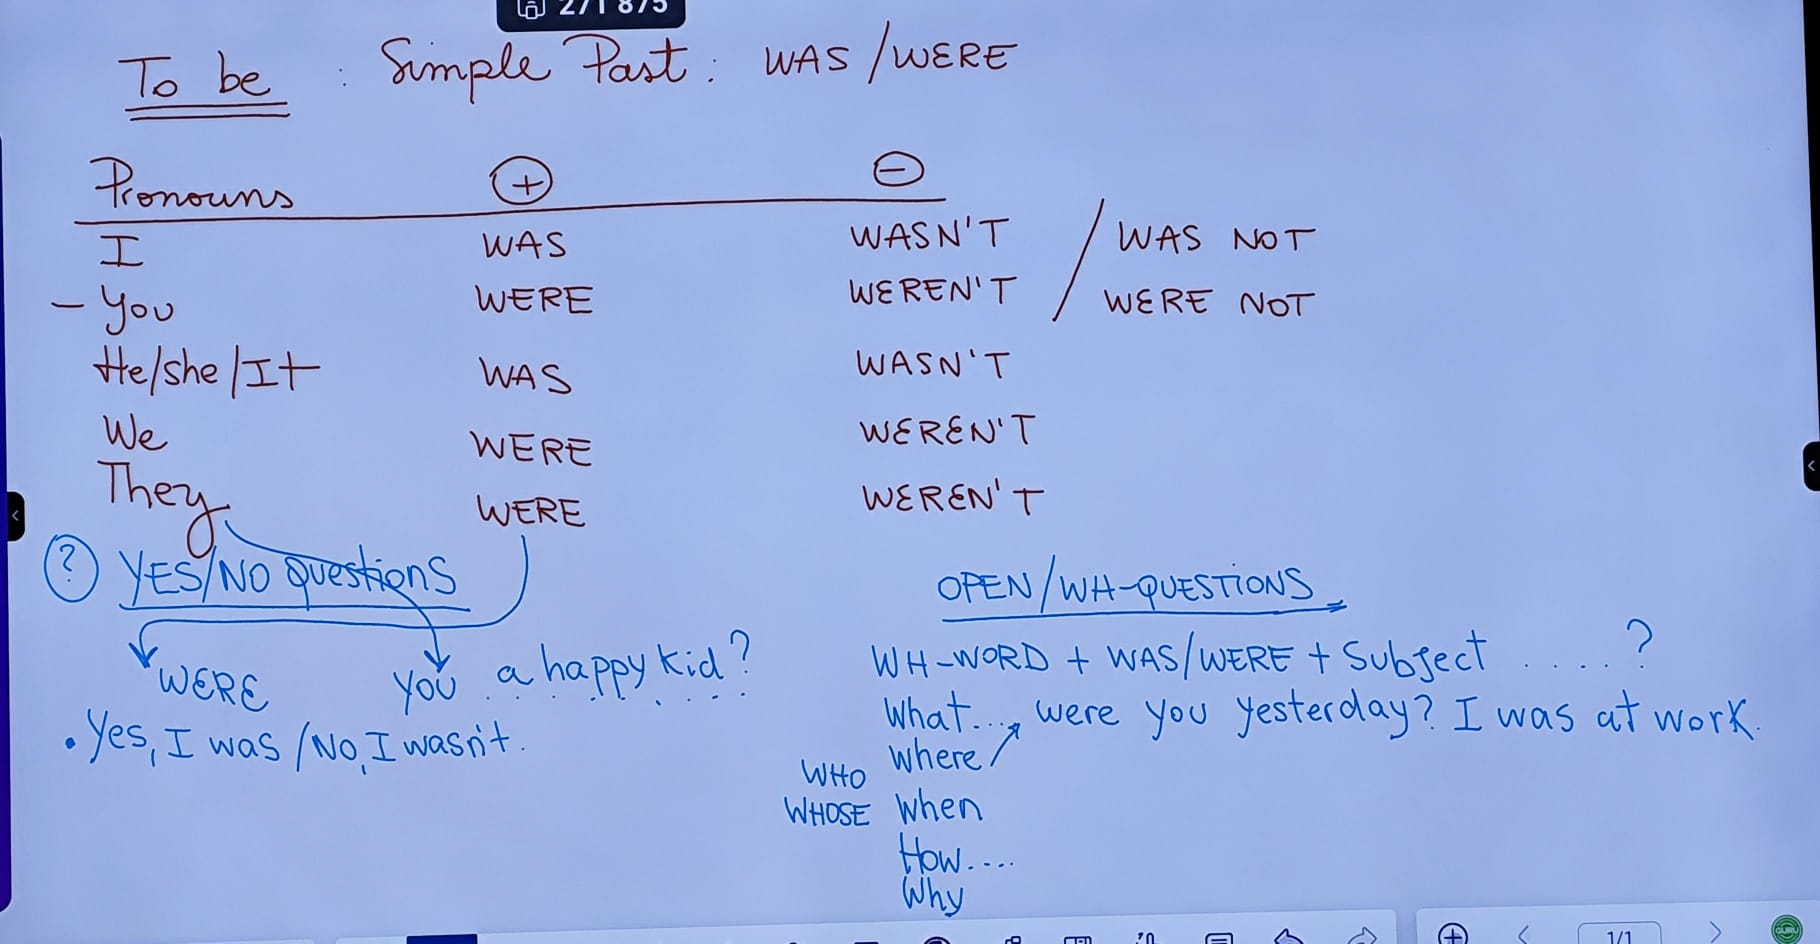 271 875
To be : Simple Past : WAS / WERE
Pronouns + -
I WAS WASN'T / WAS NOT
- You WERE WEREN'T / WERE NOT
He/she/It WAS WASN'T
We WERE WEREN'T
They WERE WEREN'T
? YES/NO questions
WERE you a happy kid?
• Yes, I was / No, I wasn't.
OPEN/WH-QUESTIONS
WH-WORD + WAS/WERE + Subject .....?
What... were you yesterday? I was at work.
Where
WHO
WHOSE When
How....
Why
1/1
GURU